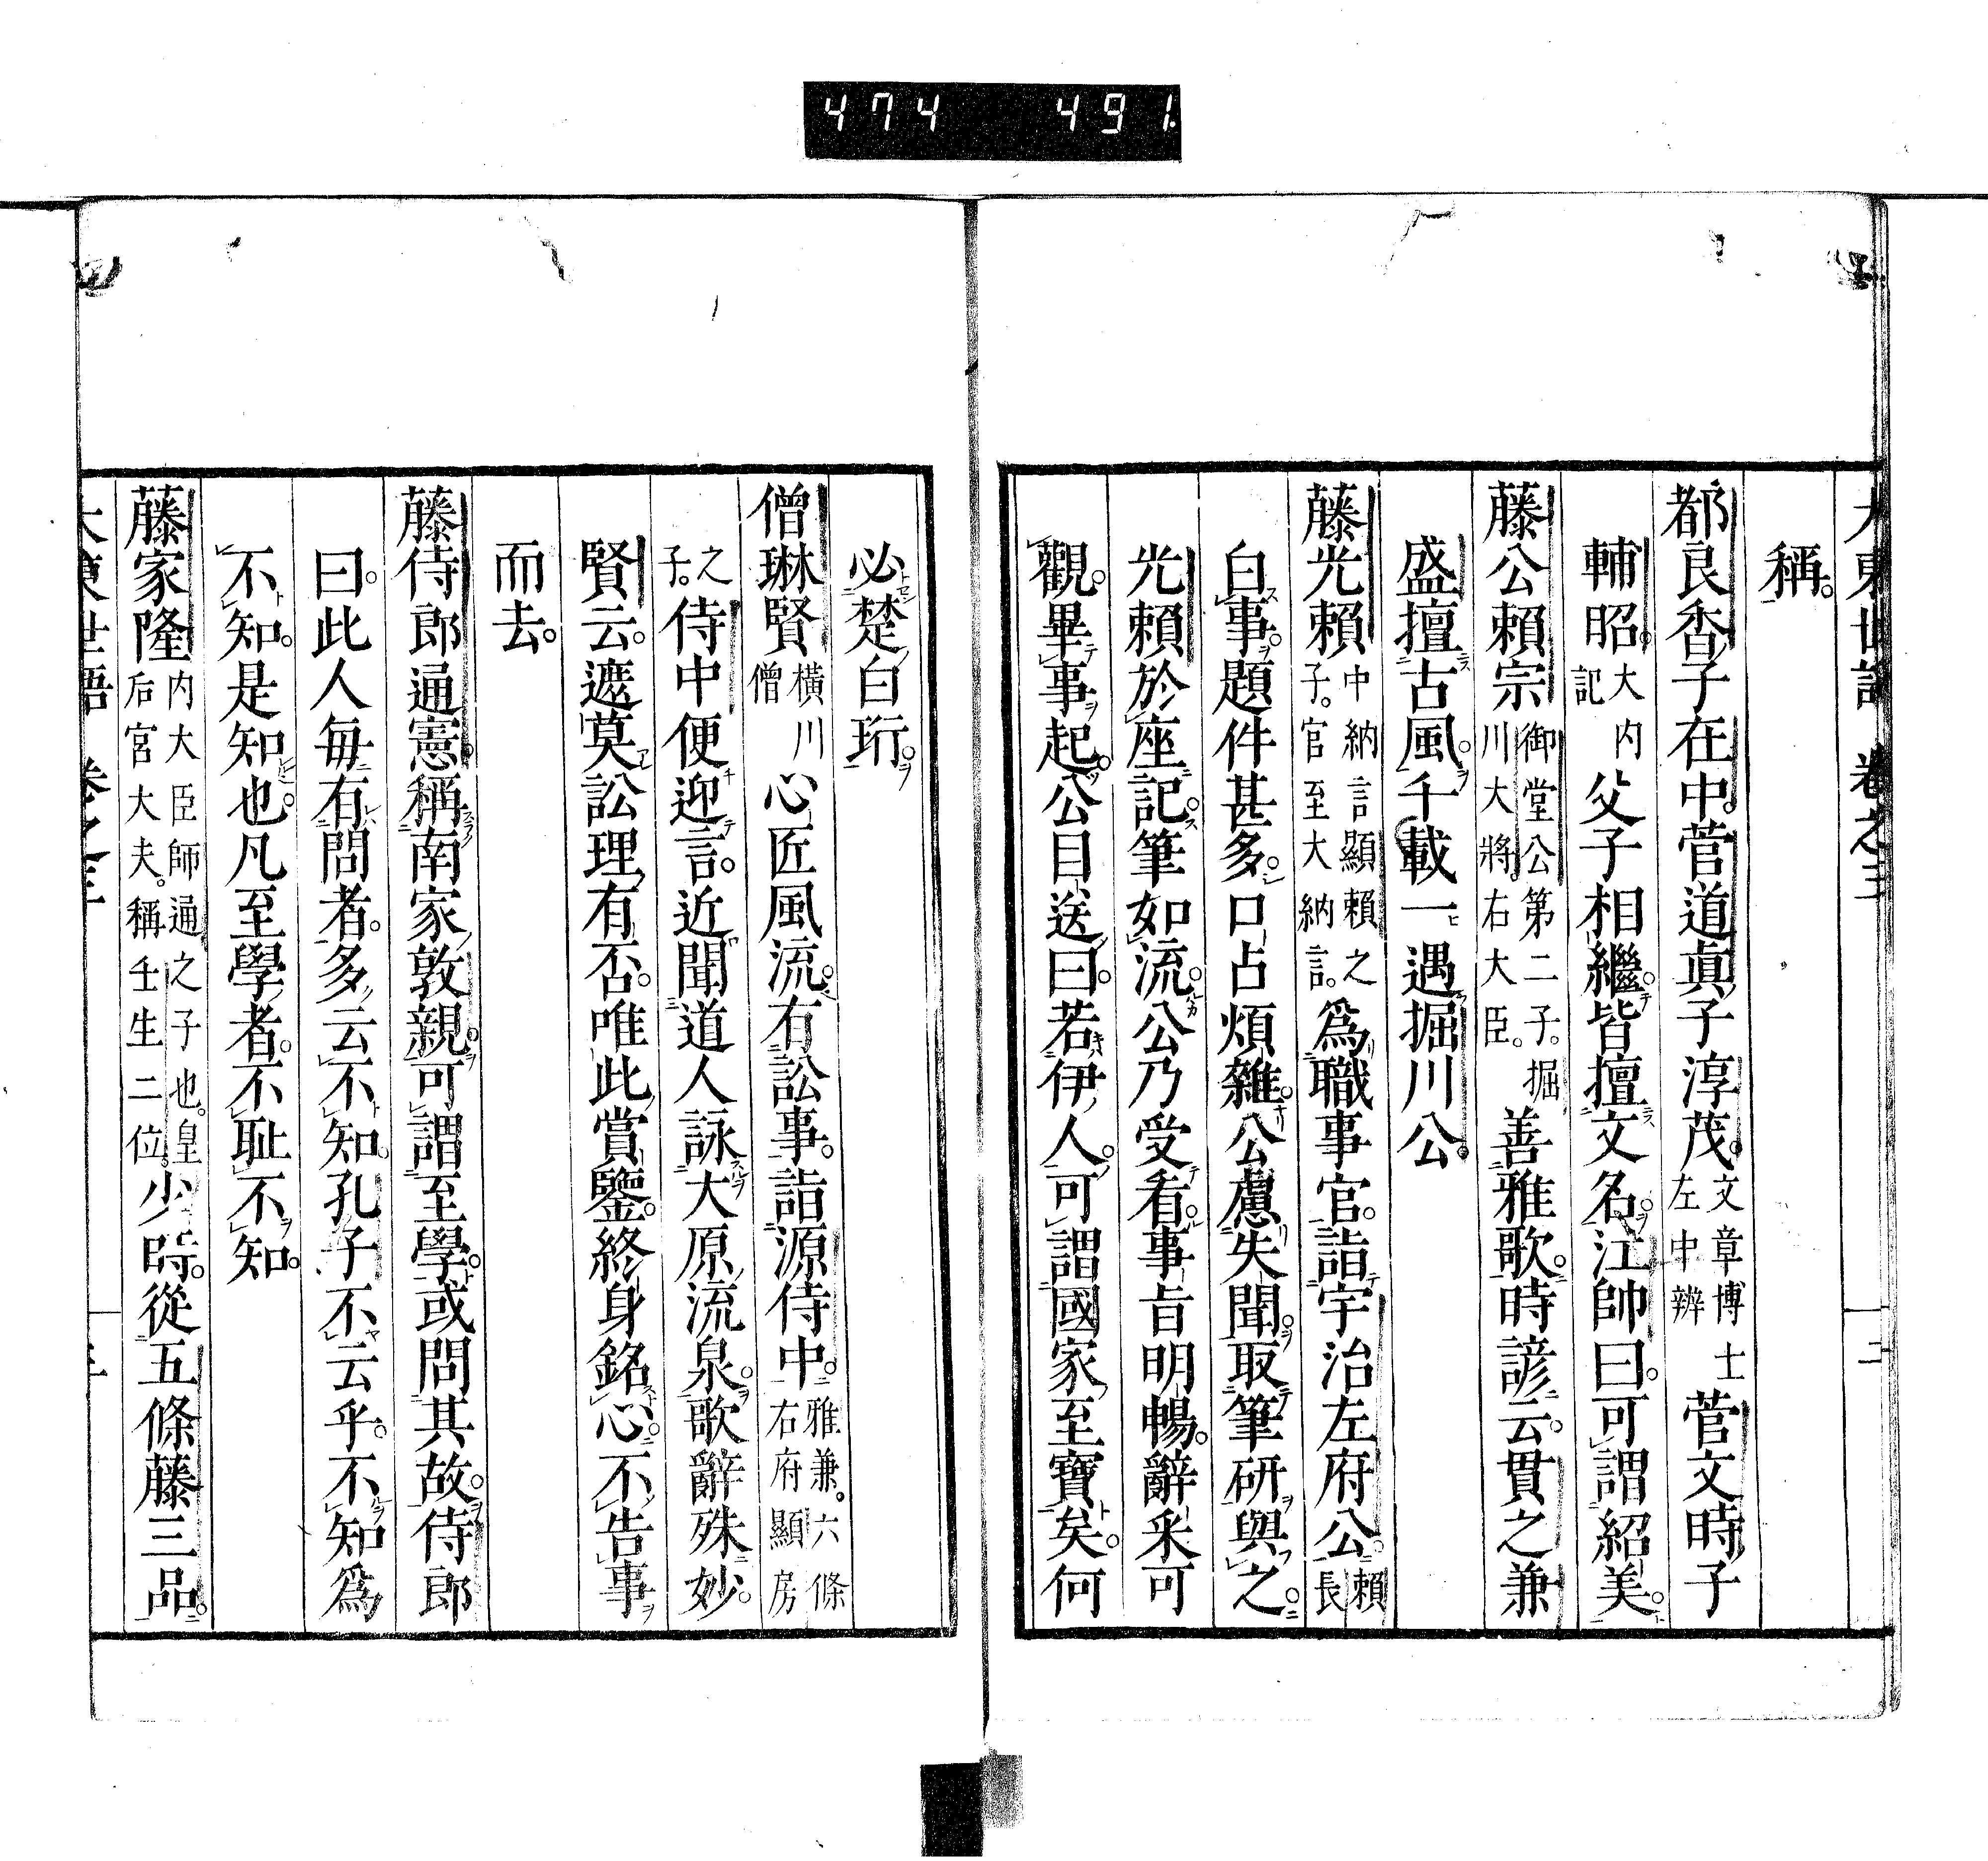 474 491
大東世語 卷之三 二
稱。
都良香子在中。菅道眞子淳茂。文章博士左中辨菅文時子
輔昭。大内記父子相繼。皆擅文名。江帥曰。可謂紹美。
藤公賴宗御堂公第二子。堀川大將。右大臣。善雅歌。時諺云。貫之兼
盛擅古風。千載一遇堀川公。
藤光賴中納言顯賴之子。官至大納言。爲職事官。詣宇治左府公。賴長
白事。題件甚多。口占煩雜。公慮失聞。取筆研與之。
光賴於座記。筆如流。公乃受看。事旨明暢。辭釆可
觀。畢事起。公目送曰。若伊人。可謂國家至寶矣。何
必楚白珩。
僧琳賢橫川僧心匠風流。有訟事。詣源侍中。雅兼。六條右府顯房
之子。侍中便迎言。近聞道人詠大原流泉。歌辭殊妙。
賢云。遮莫訟理有否。唯此賞鑒。終身銘心。不告事
而去。
藤侍郎通憲。稱南家敦親。可謂至學。或問其故。侍郎
曰。此人每有問者。多云不知。孔子不云乎。不知爲
不知。是知也。凡至學者。不恥不知。
藤家隆内大臣師通之子也。皇后宮大夫。稱壬生二位。少時。從五條藤三品。
大東世語 卷之三 三